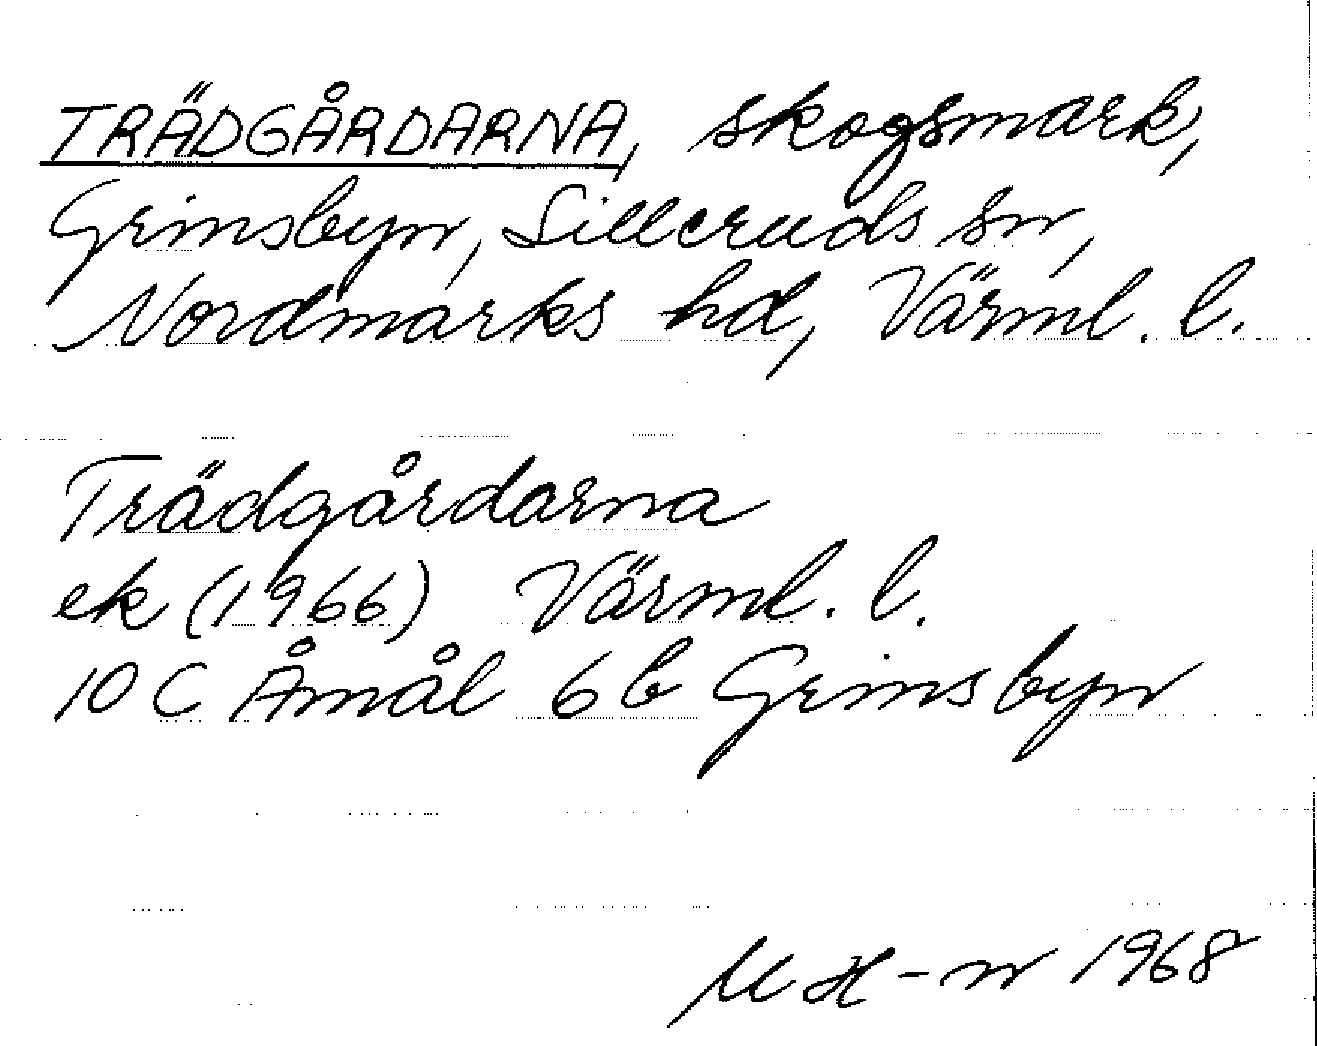 TRÄDGÅRDARNA, skogsmark,
Grinsbyn, Silleruds sn,
Nordmarks hd, Värml. l.
Trädgårdarna
ek (1966) Värml. l.
10 C Åmål 6 b Grinsbyn
MH-n 1968